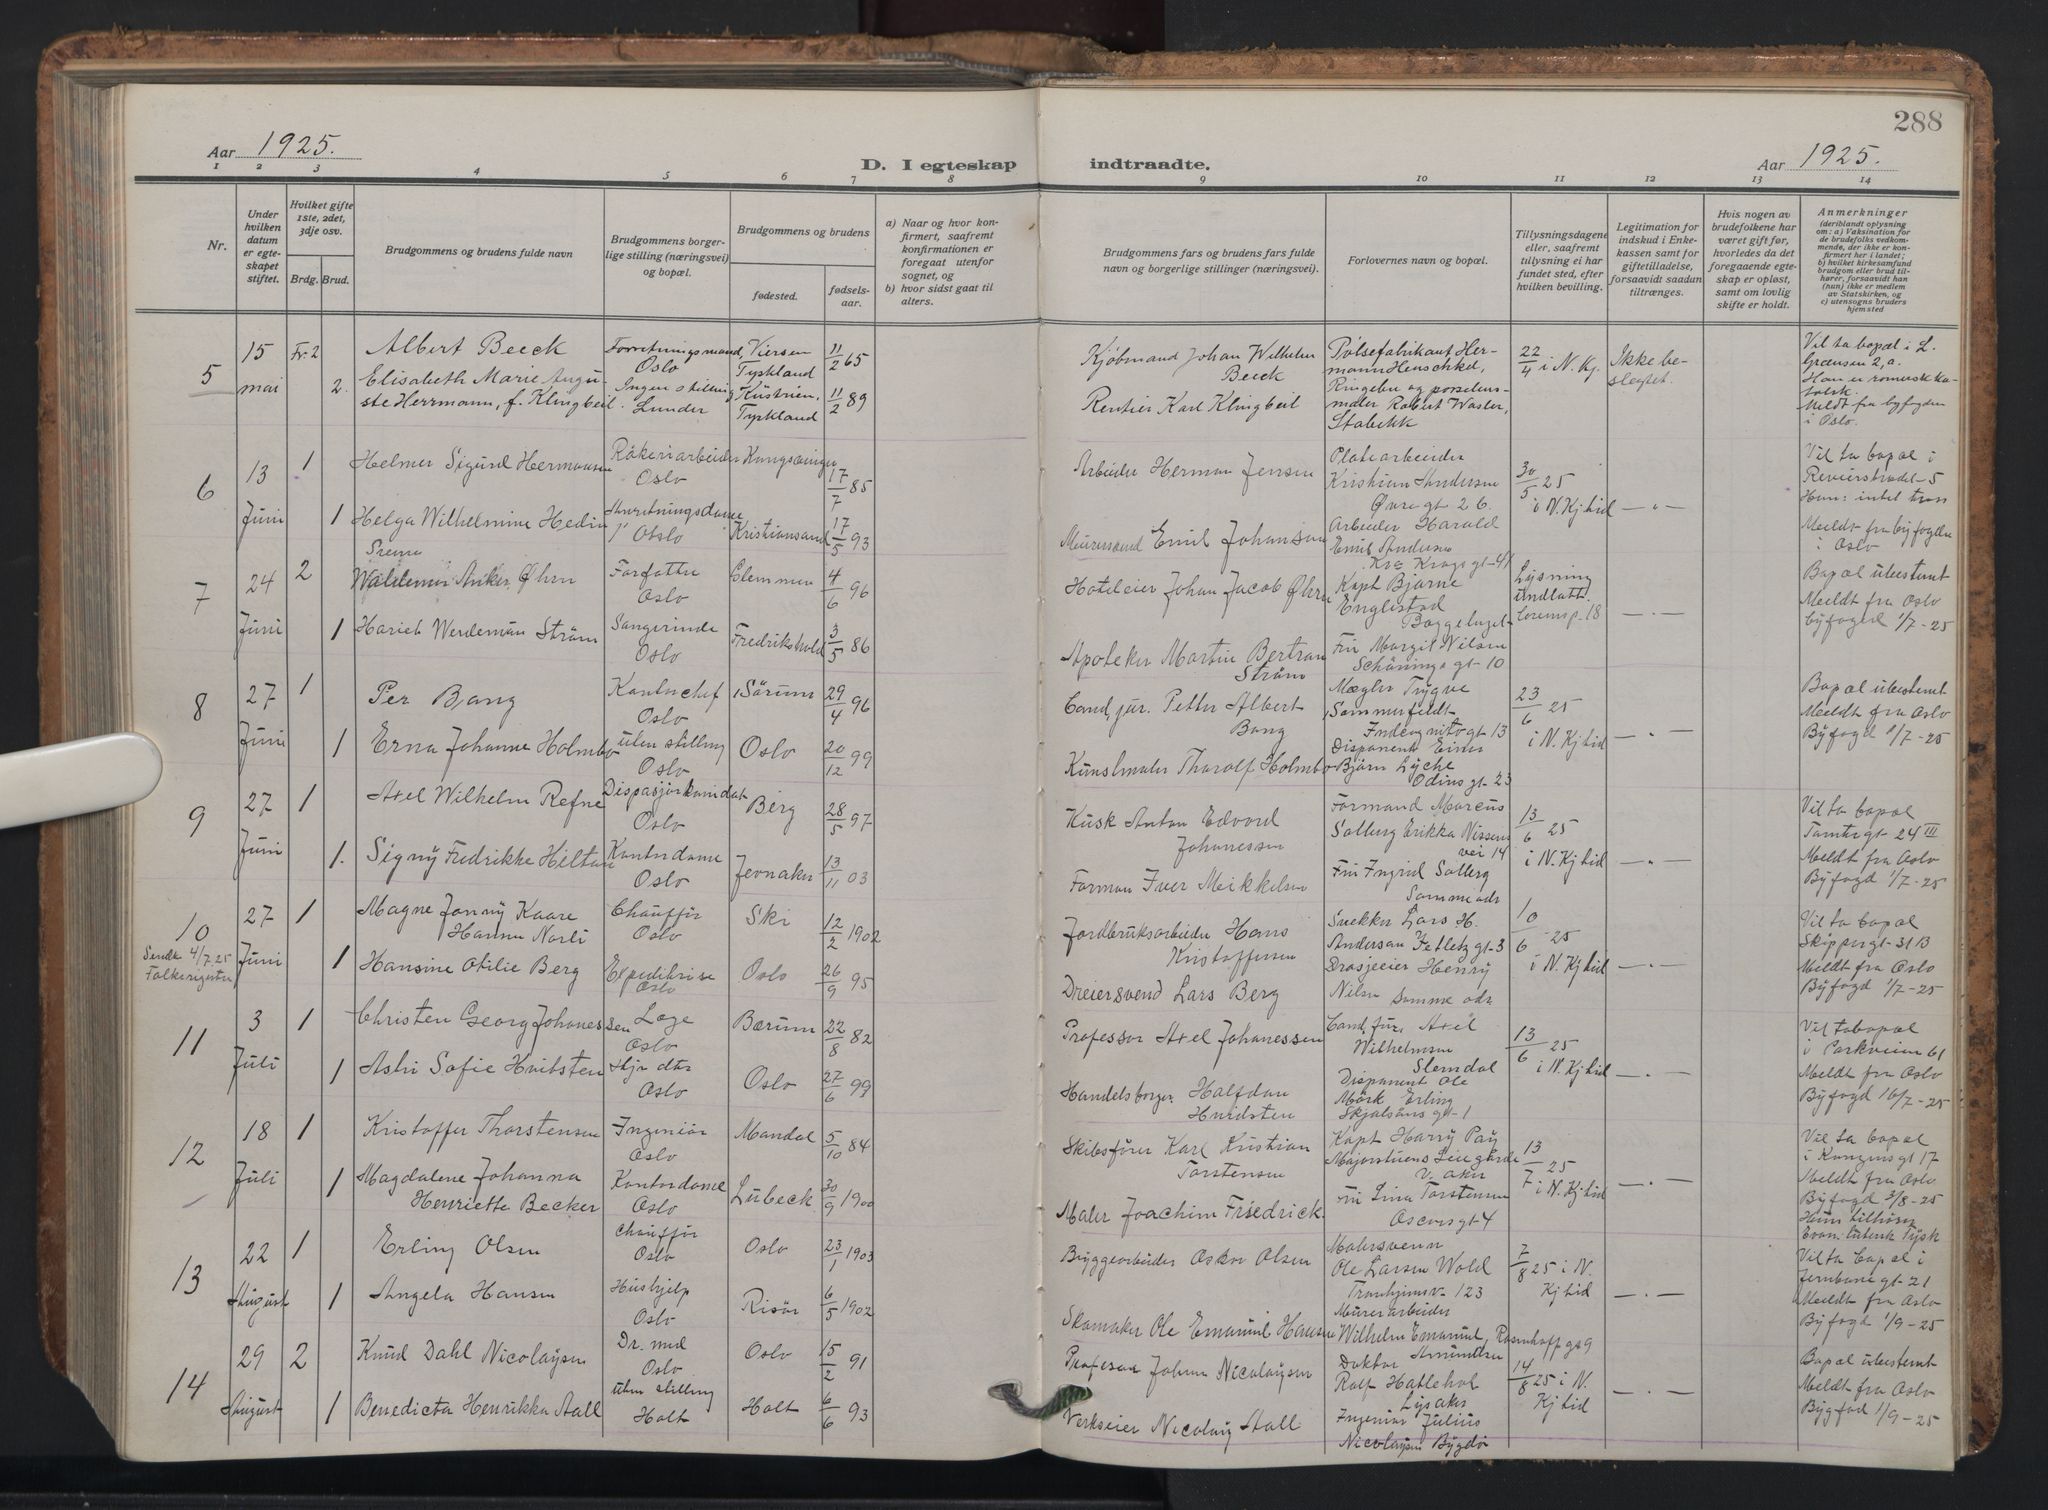 288
Aar 1925.
D. I egteskap indtraadte.
Aar 1925.
1 2 3 4 5 6 7 8 9 10 11 12 13 14
Nr.
Under hvilken datum er egteskapet stiftet.
Hvilket gifte 1ste, 2det, 3dje osv.
Brdg. Brud.
Brudgommens og brudens fulde navn
Brudgommens borgerlige stilling (næringsvei) og bopæl.
Brudgommens og brudens
fødested. fødselsaar.
a) Naar og hvor konfirmert, saafremt konfirmationen er foregaat utenfor sognet, og
b) hvor sidst gaat til alters.
Brudgommens og brudens fars fulde navn og borgerlige stillinger (næringsvei).
Forlovernes navn og bopæl.
Tillysningsdagene eller, saafremt tillysning ei har fundet sted, efter hvilken bevilling.
Legitimation for indskud i Enkekassen samt for giftetilladelse, forsaavidt saadan tiltrænges.
Hvis nogen av brudefolkene har været gift før, hvorledes da det foregaaende egteskap er opløst, samt om lovlig skifte er holdt.
Anmerkninger (deriblandt oplysning om: a) Vaksination for de brudefolks vedkommende, der ikke er konfirmert her i landet; b) hvilket kirkesamfund brudgom eller brud tilhører, forsaavidt han (hun) ikke er medlem av Statskirken, og c) utensogns bruders hjemsted
5 15 mai
Fr. 2 Albert Beeck Forretningsmand, Oslo Viersen Tyskland 11/2 65
2. Elisabeth Marie Auguste Herrmann, f. Klingbeil. Ingen stilling Lunder Küstrien, Tyskland 11/2 89
Kjøbmand Johan Wilhelm Beeck
Rentier Karl Klingbeil
Pølsefabrikant Hermann Henschkel, Ringelen og porselensmaler Robert Waster, Stabekk
22/4 i N. Kj.
Ikke beslegtet.
Vil ta bopæl i L. Grænsen 2, a.
Han er romersk katolsk.
Meldt fra byfogden i Oslo.
6 13 Juni
1 Helmer Sigurd Hermansen Røkeriarbeider Oslo Kongsvinger 17/7 85
1 Helga Wilhelmine Hedin Oslo Kristiansand 17/5 93
Arbeider Herman Jensen
Murersvend Emil Johansen
Platearbeider Kristian Andersen Øvregt 26.
Arbeider Harald Emil Andersen Kr. Krogs gt-41
30/5 25 i N. Kj tid
— " —
Vil ta bopæl i Revierstrædet-5
Han: intet tros
Meldt fra byfogden i Oslo
7 24 Juni
2 Waldemar Anker Øhrn Forfatter Oslo Glemmen 4/6 96
1 Harieh Werdeman Strøm Sangerinde Oslo Fredrikshald 3/5 86
Hoteleier Johan Jacob Øhrn
Apoteker Martin Bertran Strøm
Kapt Bjarne Englistad
Frk Margit Wilsen Schönings gt-10
Lysning undlatt.
— " —
Bopæl ubestemt
Meldt fra Oslo
Byfogd 1/7-25
8 27 Juni
1 Per Bang Kontorchef Oslo Sørum 29/4 96
1 Erna Johanne Holmbo uten stilling Oslo Oslo 20/12 99
Cand. jur. Petter Albert Bang
Kunstmaler Tharalf Holmbo
Mægler Trygve Sommerfeldt Incognitogt 13
Disponent Einar Bjørn Lyche Odins gt-23
23/6 25 i N. Kj tid
— " —
Bopæl ubestemt
Meldt fra Oslo
Byfogd 1/7-25
9 27 Juni
1 Axel Wilhelm Refne Oslo Berg 28/5 97
1. Signy Fredrikke Hilton Kontordame Oslo Jevnaker 13/11 03
Kusk Anton Edvord Johanessen
Forman Iver Mikkelsen
Formand Marcus Solberg Erikka Nissens vei 14
Frk Ingrid Solberg Samme adr
13/6 25 i N. Kj tid
— " —
Vil ta bopæl
Tomtegt-24 III
Meldt fra Oslo
Byfogd 1/7-25
10 27 Juni
Sendt 4/7 25 Folkeregister
1 Magne Jonny Kaare Hannu Norli Chauffør Oslo Ski 12/2 1902
1 Hansine Otilie Berg Expeditrise Oslo Oslo 26/9 95
Jordbruksarbeider Hans Kristoffersen
Dreiersvend Lars Berg
Snekker Lars H. Andersen
Drosjeeier Henry Nilsen samme adr
10/6 25 i N. Kj tid
— " —
Vil ta bopæl
Skippergt-31 B
Meldt fra Oslo
Byfogd 1/7-25
11 3 Juli
1 Christen Georg Johanessen Læge Oslo Bærum 22/8 82
1 Astri Sofie Hvitsten Hjv dtr Oslo Oslo 27/6 99
Professor Axel Johanessen
Handelsborger Halfdan Hvidsten
Cand. jur. Axel Wilhelmsen Slemdal
Disponent Ole Mørk Erling Skjalsøns gt-1
13/6 25 i N. Kj tid
— " —
Vil ta bopæl
i Parkveien 61
Meldt fra Oslo
Byfogd 16/7-25
12 18 Juli
1 Kristoffer Thorstensen Ingeniør Oslo Mandal 5/10 84
1 Magdalene Johanna Henriette Becker Kontordame Oslo Lübeck 30/9 1900
Skibsfører Karl Kristian Torstensen
Maler Joachim Friedrick.
Kapt Harry Pay Majorstuens Leiegårde V. aker
Frk Lina Torstensen Oscarsgt 4
13/7 25 i N. Kj tid
— " —
Vil ta bopæl
i Kongens gt 17
Meldt fra Oslo
Byfogd 3/8-25
Hun tilhører Evan. Luterik Tysk
13 22 August
1 Erling Olsen Chauffør Oslo Oslo 23/1 1903
1 Angela Hansen Hushjelp Oslo Risør 6/5 1902
Bryggearbeider Oskar Olsen
Skomaker Ole Emanuel Hansen
Malersvenn Ole Larsen Wold Tronhjemsv. 123
Murerarbeider Wilhelm Emanuel Amundsen Rosenhoffgt 9
7/8 25 i N. Kj tid
— " —
Vil ta bopæl i
Jernbanegt-21
Meldt fra Oslo
Byfogd 1/9-25
14 29 August
2 Knud Dahl Nicolaysen Dr. med Oslo Oslo 15/2 91
1 Benedicta Henrikka Aall uten stilling Holt Holt 6/6 93
Profesor Johan Nicolaysen
Verkseier Nicolay Aall
Doktor Rolf Hatlehol Lysaker
Ingeniør Julius Nicolaysen Bygdø
14/8 25 i N. Kj tid
— " —
Bopæl ubestemt
Meldt fra Oslo
Bygfod 1/9-25